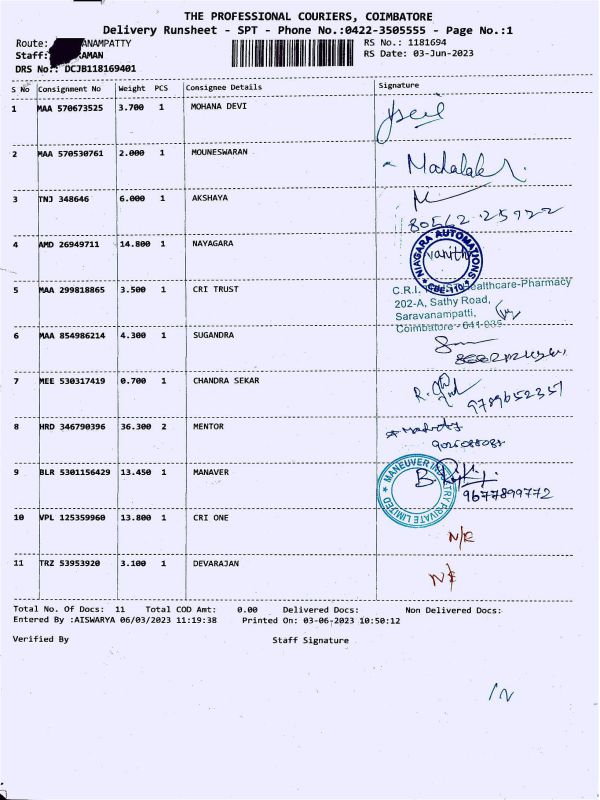 THE PROFESSIONAL COURIERS, COIMBATORE
Delivery Runsheet - SPT - Phone No.:0422-3505555 - Page No.:1
Route: ANAMPATTY RS No.: 1181694
Staff: RAMAN RS Date: 03-Jun-2023
DRS No.: DCJB118169401
S No Consignment No Weight PCS Consignee Details Signature
1 MAA 570673525 3.700 1 MOHANA DEVI
2 MAA 570530761 2.000 1 MOUNESWARAN
3 TNJ 348646 6.000 1 AKSHAYA
80562 25922
4 AMD 26949711 14.800 1 NAYAGARA
NIAGARA AUTOMATIONS
vanitha
5 MAA 299818865 3.500 1 CRI TRUST
C.R.I. Healthcare-Pharmacy
202-A, Sathy Road,
Saravanampatti,
Coimbatore - 641 035.
6 MAA 854986214 4.300 1 SUGANDRA
7 MEE 530317419 0.700 1 CHANDRA SEKAR
9789652351
8 HRD 346790396 36.300 2 MENTOR
9 BLR 5301156429 13.450 1 MANAVER
MANEUVER PRIVATE LIMITED
9677899772
10 VPL 125359960 13.800 1 CRI ONE
11 TRZ 53953920 3.100 1 DEVARAJAN
Total No. Of Docs: 11 Total COD Amt: 0.00 Delivered Docs: Non Delivered Docs:
Entered By :AISWARYA 06/03/2023 11:19:38 Printed On: 03-06-2023 10:50:12
Verified By Staff Signature